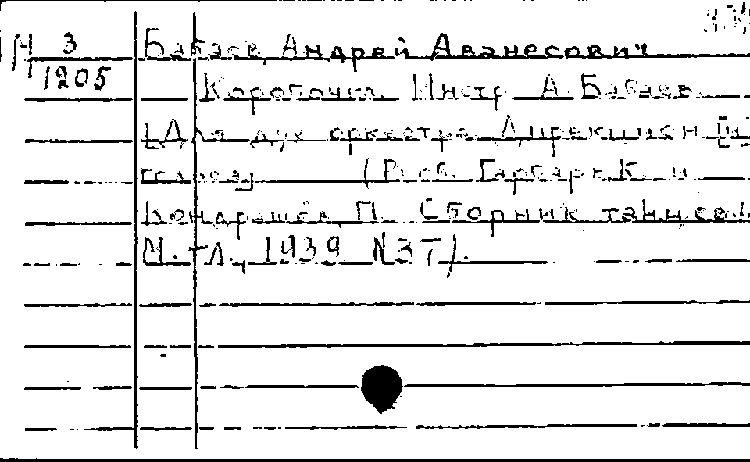 М 3/1205
Бабаев, Андрей Аванесович
Коробочка. Инстр. А. Бабаев.
[Для дух. оркестра. Дирекцион и
голоса] (В сб. Гарбарь К. и
Кондрашев П. Сборник танцев.
М.-Л., 1939 N 37).